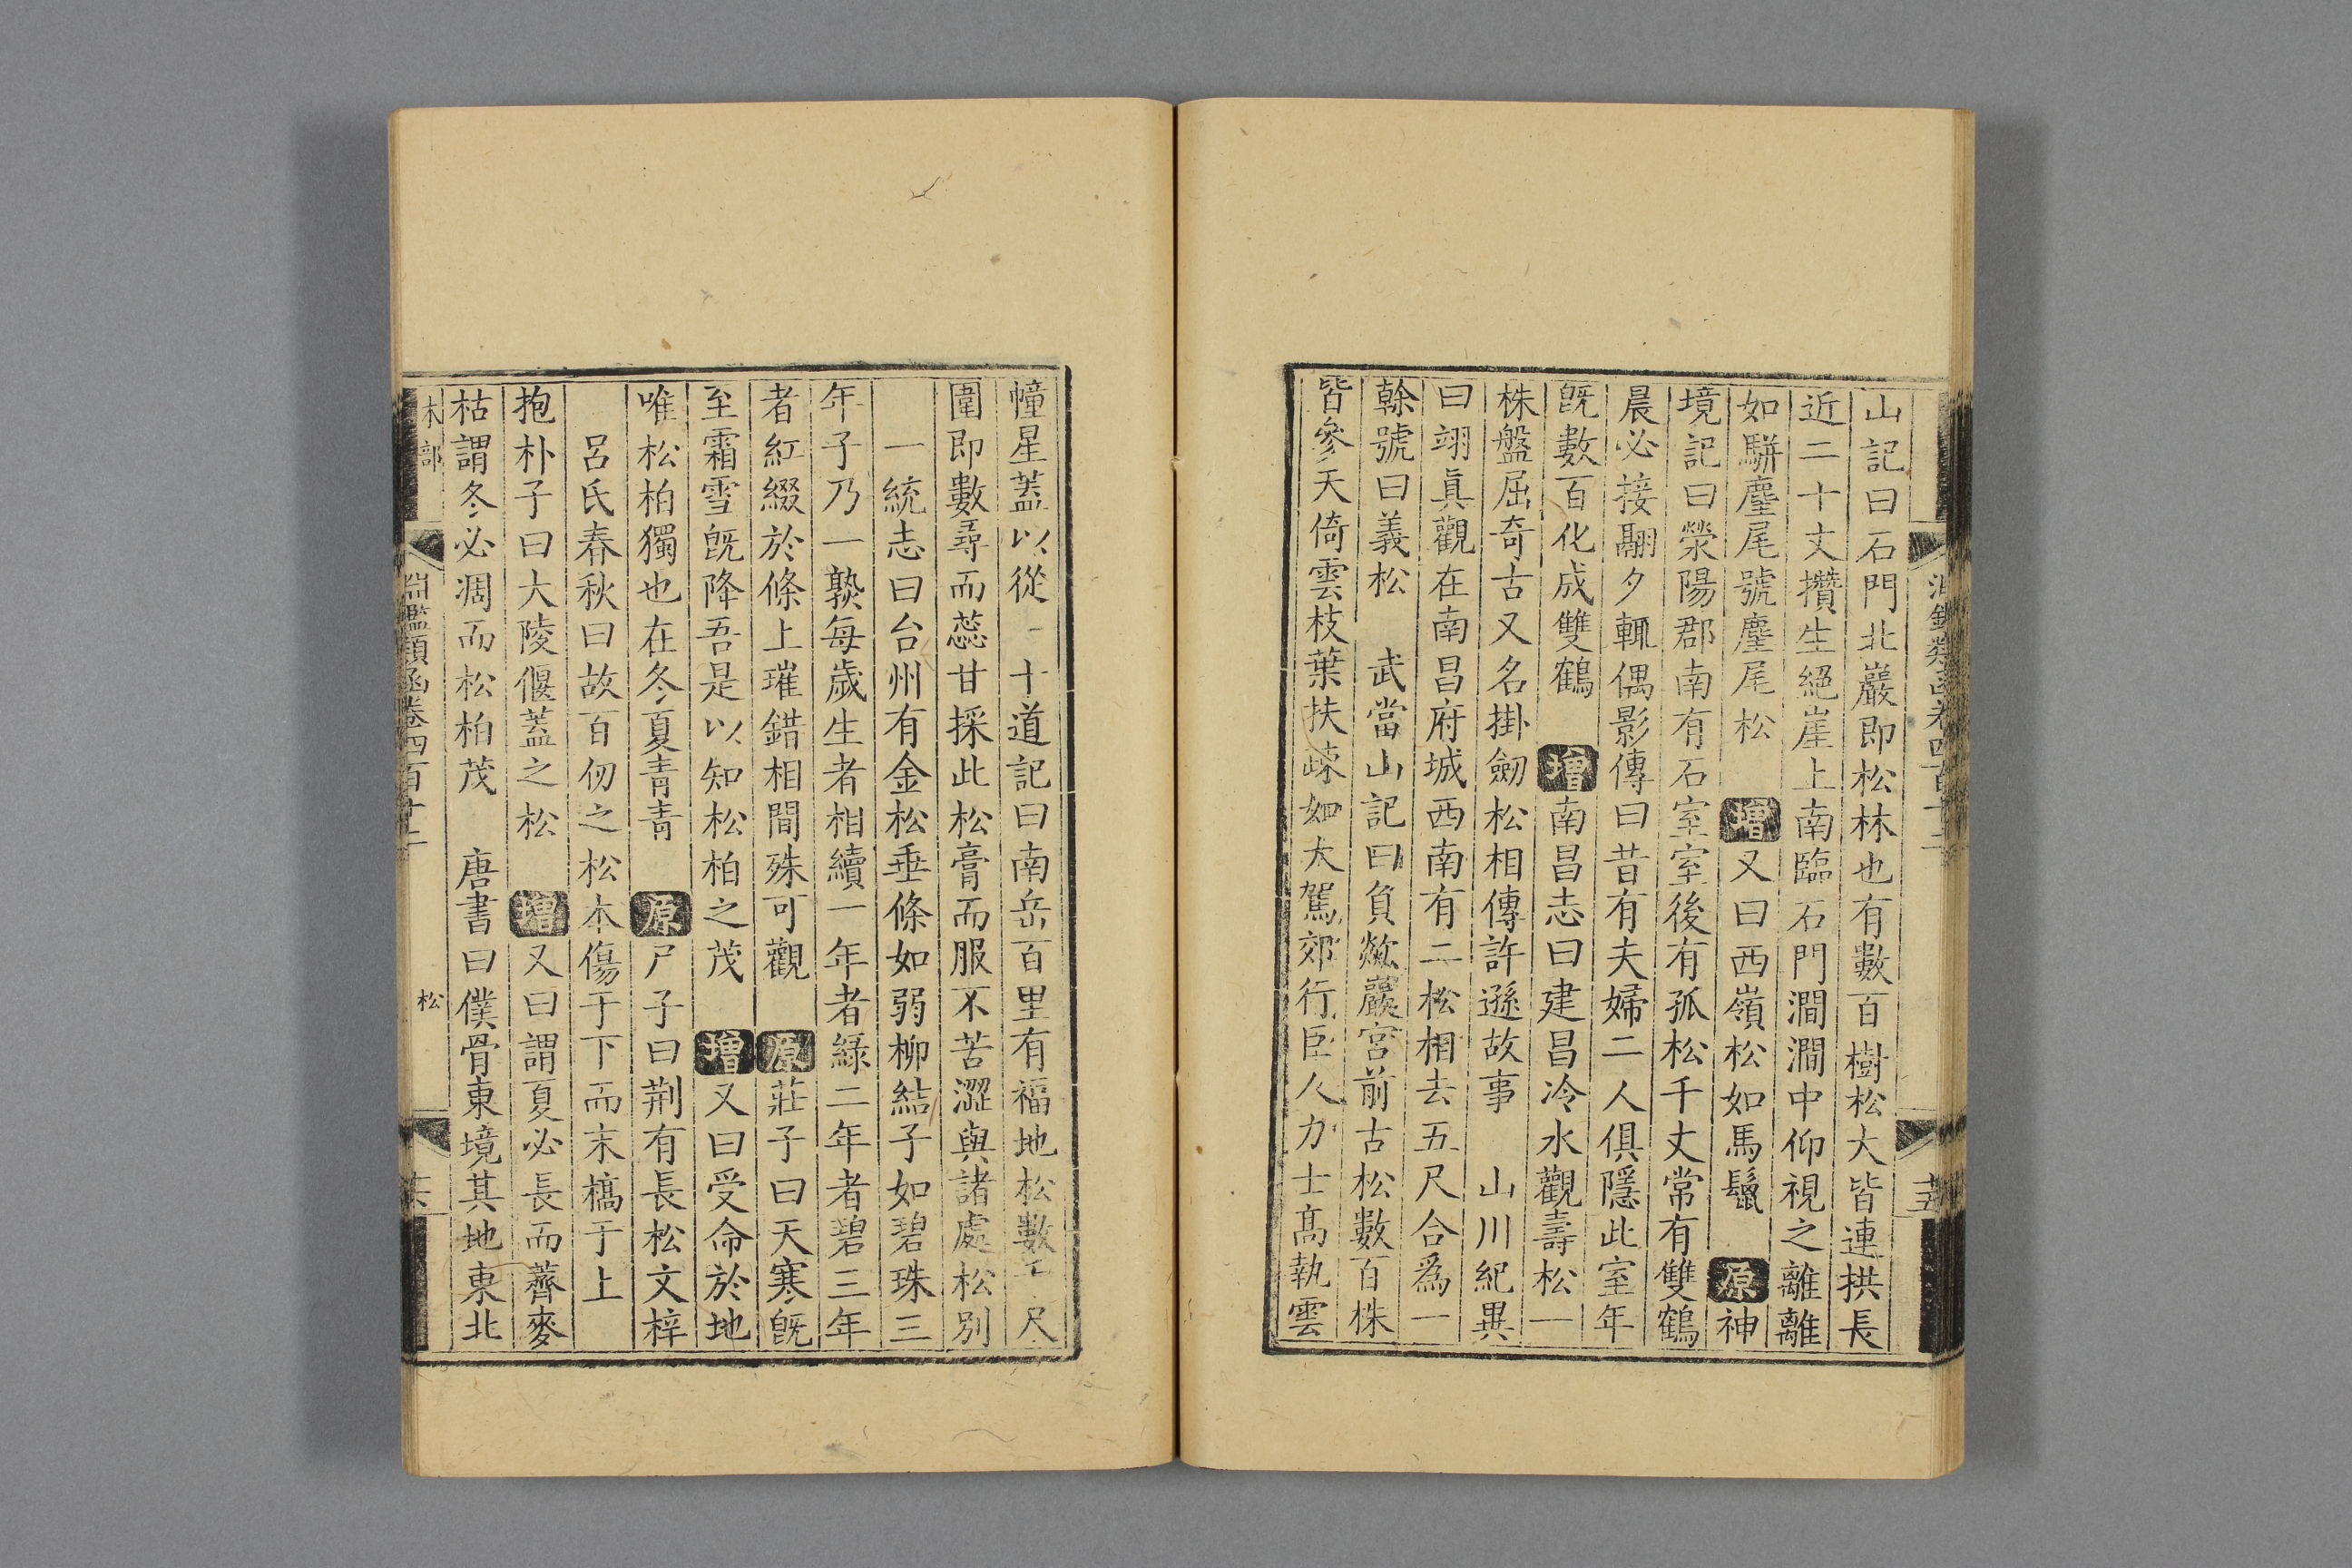 山記曰石門北巖即松林也有數百樹松大皆連拱長
近二十丈攢生絕崖上南臨石門澗澗中仰視之離離
如駢麈尾號麈尾松 增又曰西嶺松如馬鬛 原神
境記曰滎陽郡南有石室室後有孤松千丈常有雙鶴
晨必接翮夕輒偶影傳曰昔有夫婦二人俱隱此室年
旣數百化成雙鶴 增南昌志曰建昌冷水觀壽松一
株盤屈奇古又名掛劒松相傳許遜故事 山川紀異
曰翊眞觀在南昌府城西南有二松相去五尺合爲一
榦號曰義松 武當山記曰負欻巖宮前古松數百株
皆參天倚雲枝葉扶疎如大駕郊行臣人力士高執雲
幢星蓋以從 十道記曰南岳百里有福地松數 尺
圍即數尋而蕊甘採此松膏而服不苦澀與諸處松別
一統志曰台州有金松垂條如弱柳結子如碧珠三
年子乃一熟每歲生者相續一年者綠二年者碧三年
者紅綴於條上璀錯相間殊可觀 原莊子曰天寒旣
至霜雪旣降吾是以知松柏之茂 增又曰受命於地
唯松柏獨也在冬夏青青 原尸子曰荆有長松文梓
呂氏春秋曰故百仞之松本傷于下而末槁于上
抱朴子曰大陵偃蓋之松 增又曰謂夏必長而薺麥
枯謂冬必凋而松柏茂 唐書曰僕骨東境其地東北
木部
淵鑑類函卷四百十二
松